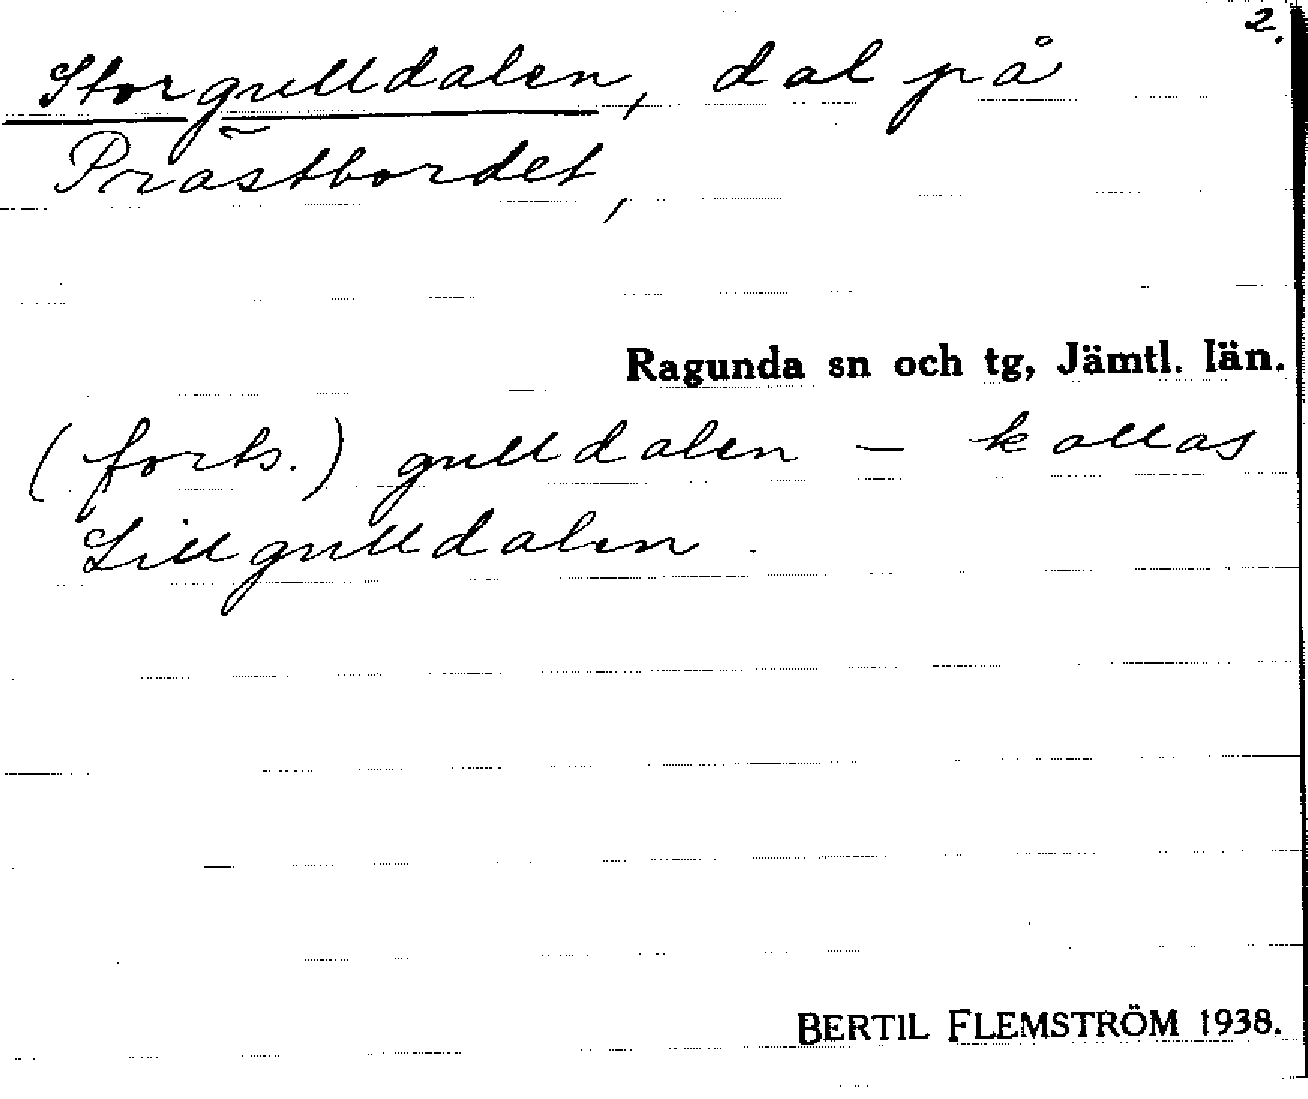 2.
Storgulldalen, dal på
Prästbordet,
Ragunda sn och tg, Jämtl. län.
(forts.) gulldalen – kallas
Lillgulldalen.
BERTIL FLEMSTRÖM 1938.